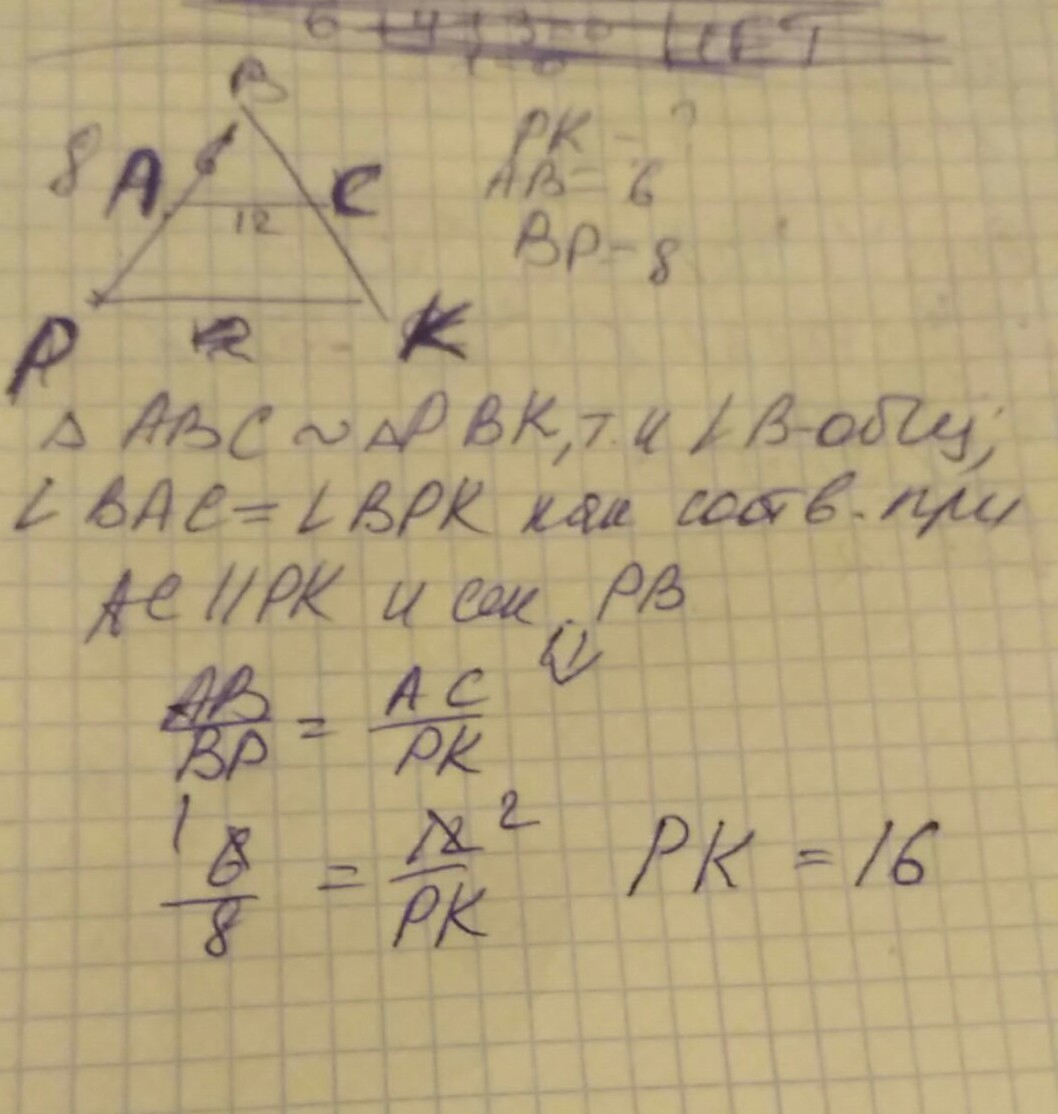 B
8 A 6 C
12
P K
PK - ?
AB = 6
BP - 8
△ ABC ~ △PBK, т.к ∠B-общ;
∠BAC = ∠BPK как соотв. при
AC || PK и сек. PB
⇓
AB/BP = AC/PK
1 6/8 = 12/PK 2 PK = 16